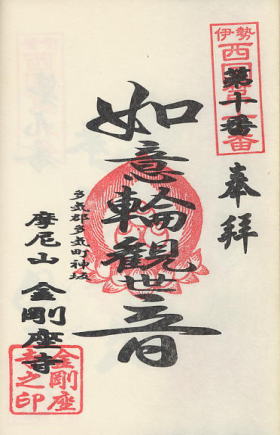 伊勢
西国三十三番
第十番
奉拝
如意輪観世音
多気郡多気町神坂
摩尼山 金剛座寺
金剛座
寺之印